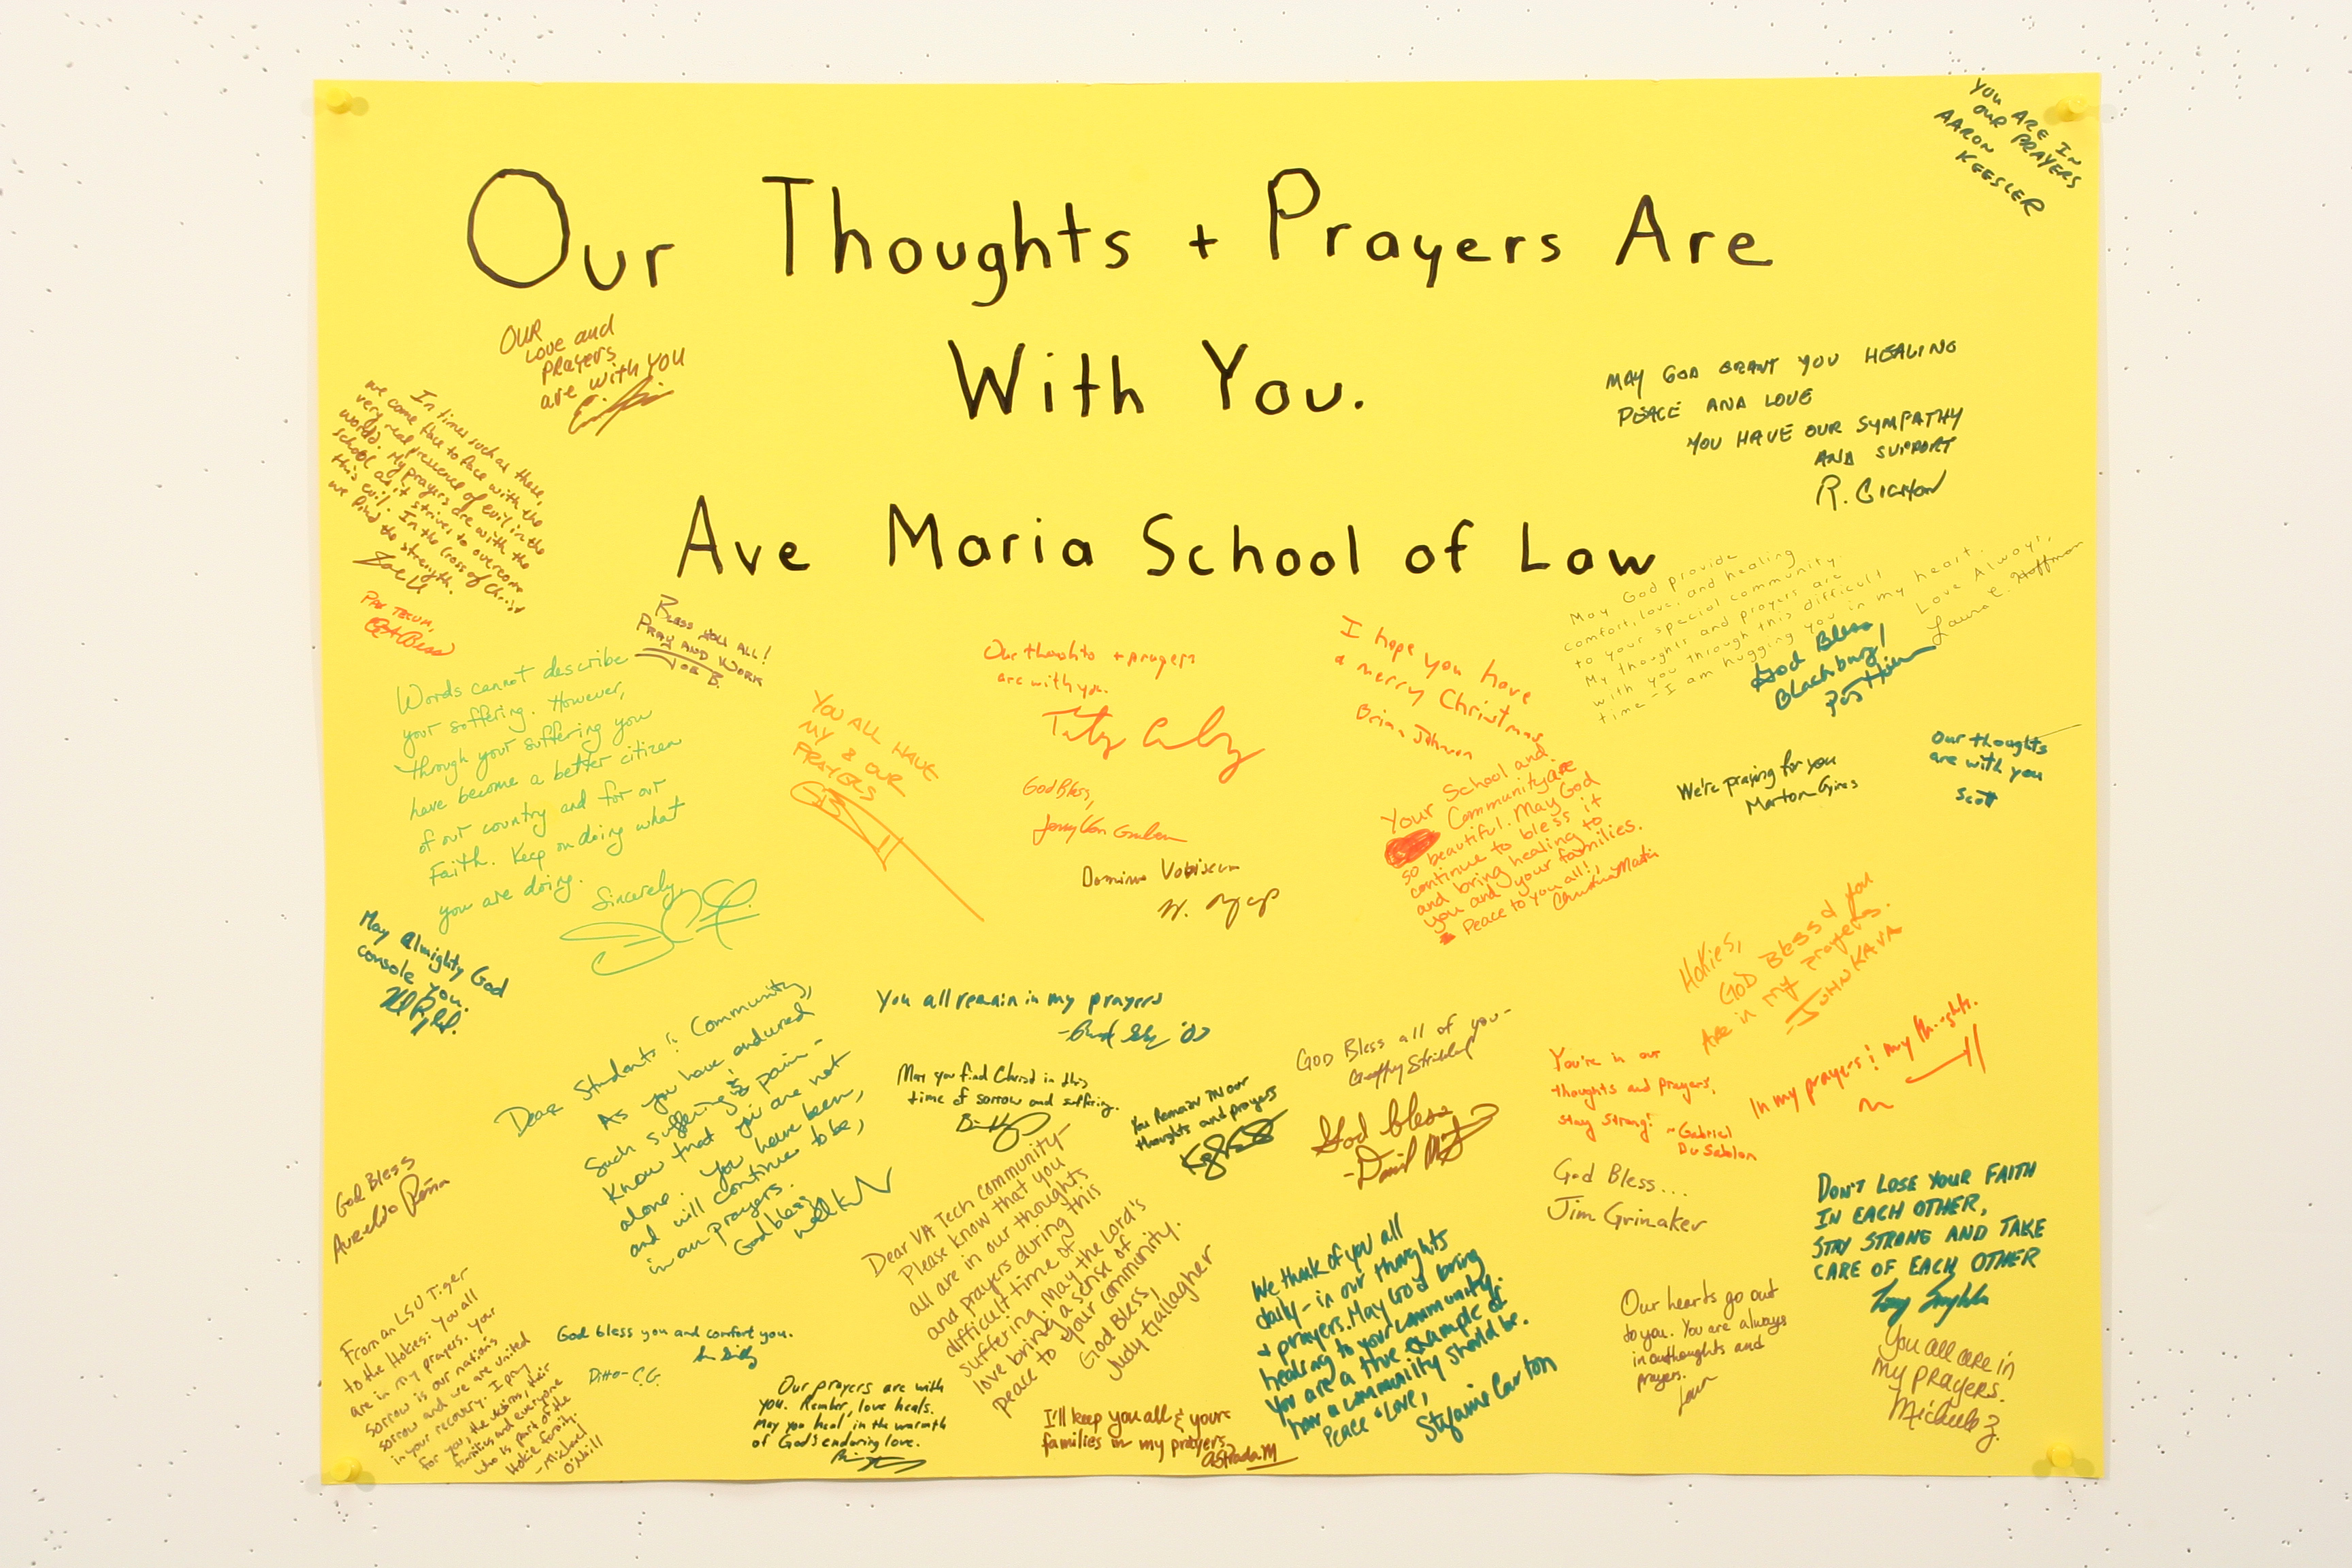 Our Thoughts + Prayers Are
With You.
Ave Maria School of Law
YOU ARE IN
OUR PRAYERS
AARON
KEESLER
OUR
Love and
PRayers
are with YOU
In times such as these,
we come face to face with the
very real presence of evil in the
world. My prayers are with the
school as it strives to overcome
this evil. In the Cross of Christ
we find the strength.
MAY GOD GRANT YOU HEALING
PEACE AND LOVE
YOU HAVE OUR SYMPATHY
AND SUPPORT
PAX TECUM,
BLESS YOU ALL!
PRAY AND WORK
JOE B.
May God provide
comfort, love, and healing
to your special community.
My thoughts and prayers are
with you through this difficult
time - I am hugging you in my heart.
Love Always,
Laura E. Hoffman
God Bless
Blacksburg!
Words cannot describe
your suffering. However,
through your suffering you
have become a better citizen
of our country and for our
Faith. Keep on doing what
you are doing.
Sincerely,
YOU ALL HAVE
MY & OUR
PRAYERS
Our thoughts + prayers
are with you.
God Bless,
Dominus Vobiscum
I hope you have
a merry Christmas
Brian Johnson
Your School and
Community are
so beautiful. May God
continue to bless it
and bring healing to
you and your families.
Peace to you all!,
Claudia Martin
We're praying for you
Our thoughts
are with you
Scott
May Almighty God
console you.
Hokies,
GOD Bless & you
Are in my prayers.
-JOHN KAVA
Dear Students & Community,
As you have endured
such suffering & pain -
Know that you are not
alone. You have been,
and will continue to be,
in our prayers.
God bless,
You all remain in my prayers
May you find Christ in this
time of sorrow and suffering.
You Remain IN our
thoughts and prayers
GOD Bless all of you-
God bless
-David
You're in our
thoughts and prayers,
stay strong!
~Gabriel
Du Sablon
In my prayers & my thoughts.
God Bless
Aurelio Peña
Dear VA Tech community-
Please know that you
all are in our thoughts
and prayers during this
difficult time of
suffering. May the Lord's
love bring a sense of
peace to your community.
God Bless,
Judy Gallagher
God Bless...
Jim Grinaker
DON'T LOSE YOUR FAITH
IN EACH OTHER,
STAY STRONG AND TAKE
CARE OF EACH OTHER
From an LSU Tiger
to the Hokies: You all
are in my prayers. Your
sorrow is our nations
sorrow and we are united
in your recovery. I pray
for you, the victims, their
families and everyone
who is part of the
Hokie family.
-Michael
O'Neill
God bless you and comfort you.
Ditto - C.G.
Our prayers are with
you. Remember, love heals.
May you heal in the warmth
of God's enduring love.
I'll keep you all & yours
families in my prayers
Astrada.M
We think of you all
daily - in our thoughts
+ prayers. May God bring
healing to your community.
You are a true example of
how a community should be.
Peace & Love,
Stefanie Carton
Our hearts go out
to you. You are always
in our thoughts and
prayers.
You all are in
my prayers.
Michele Z.